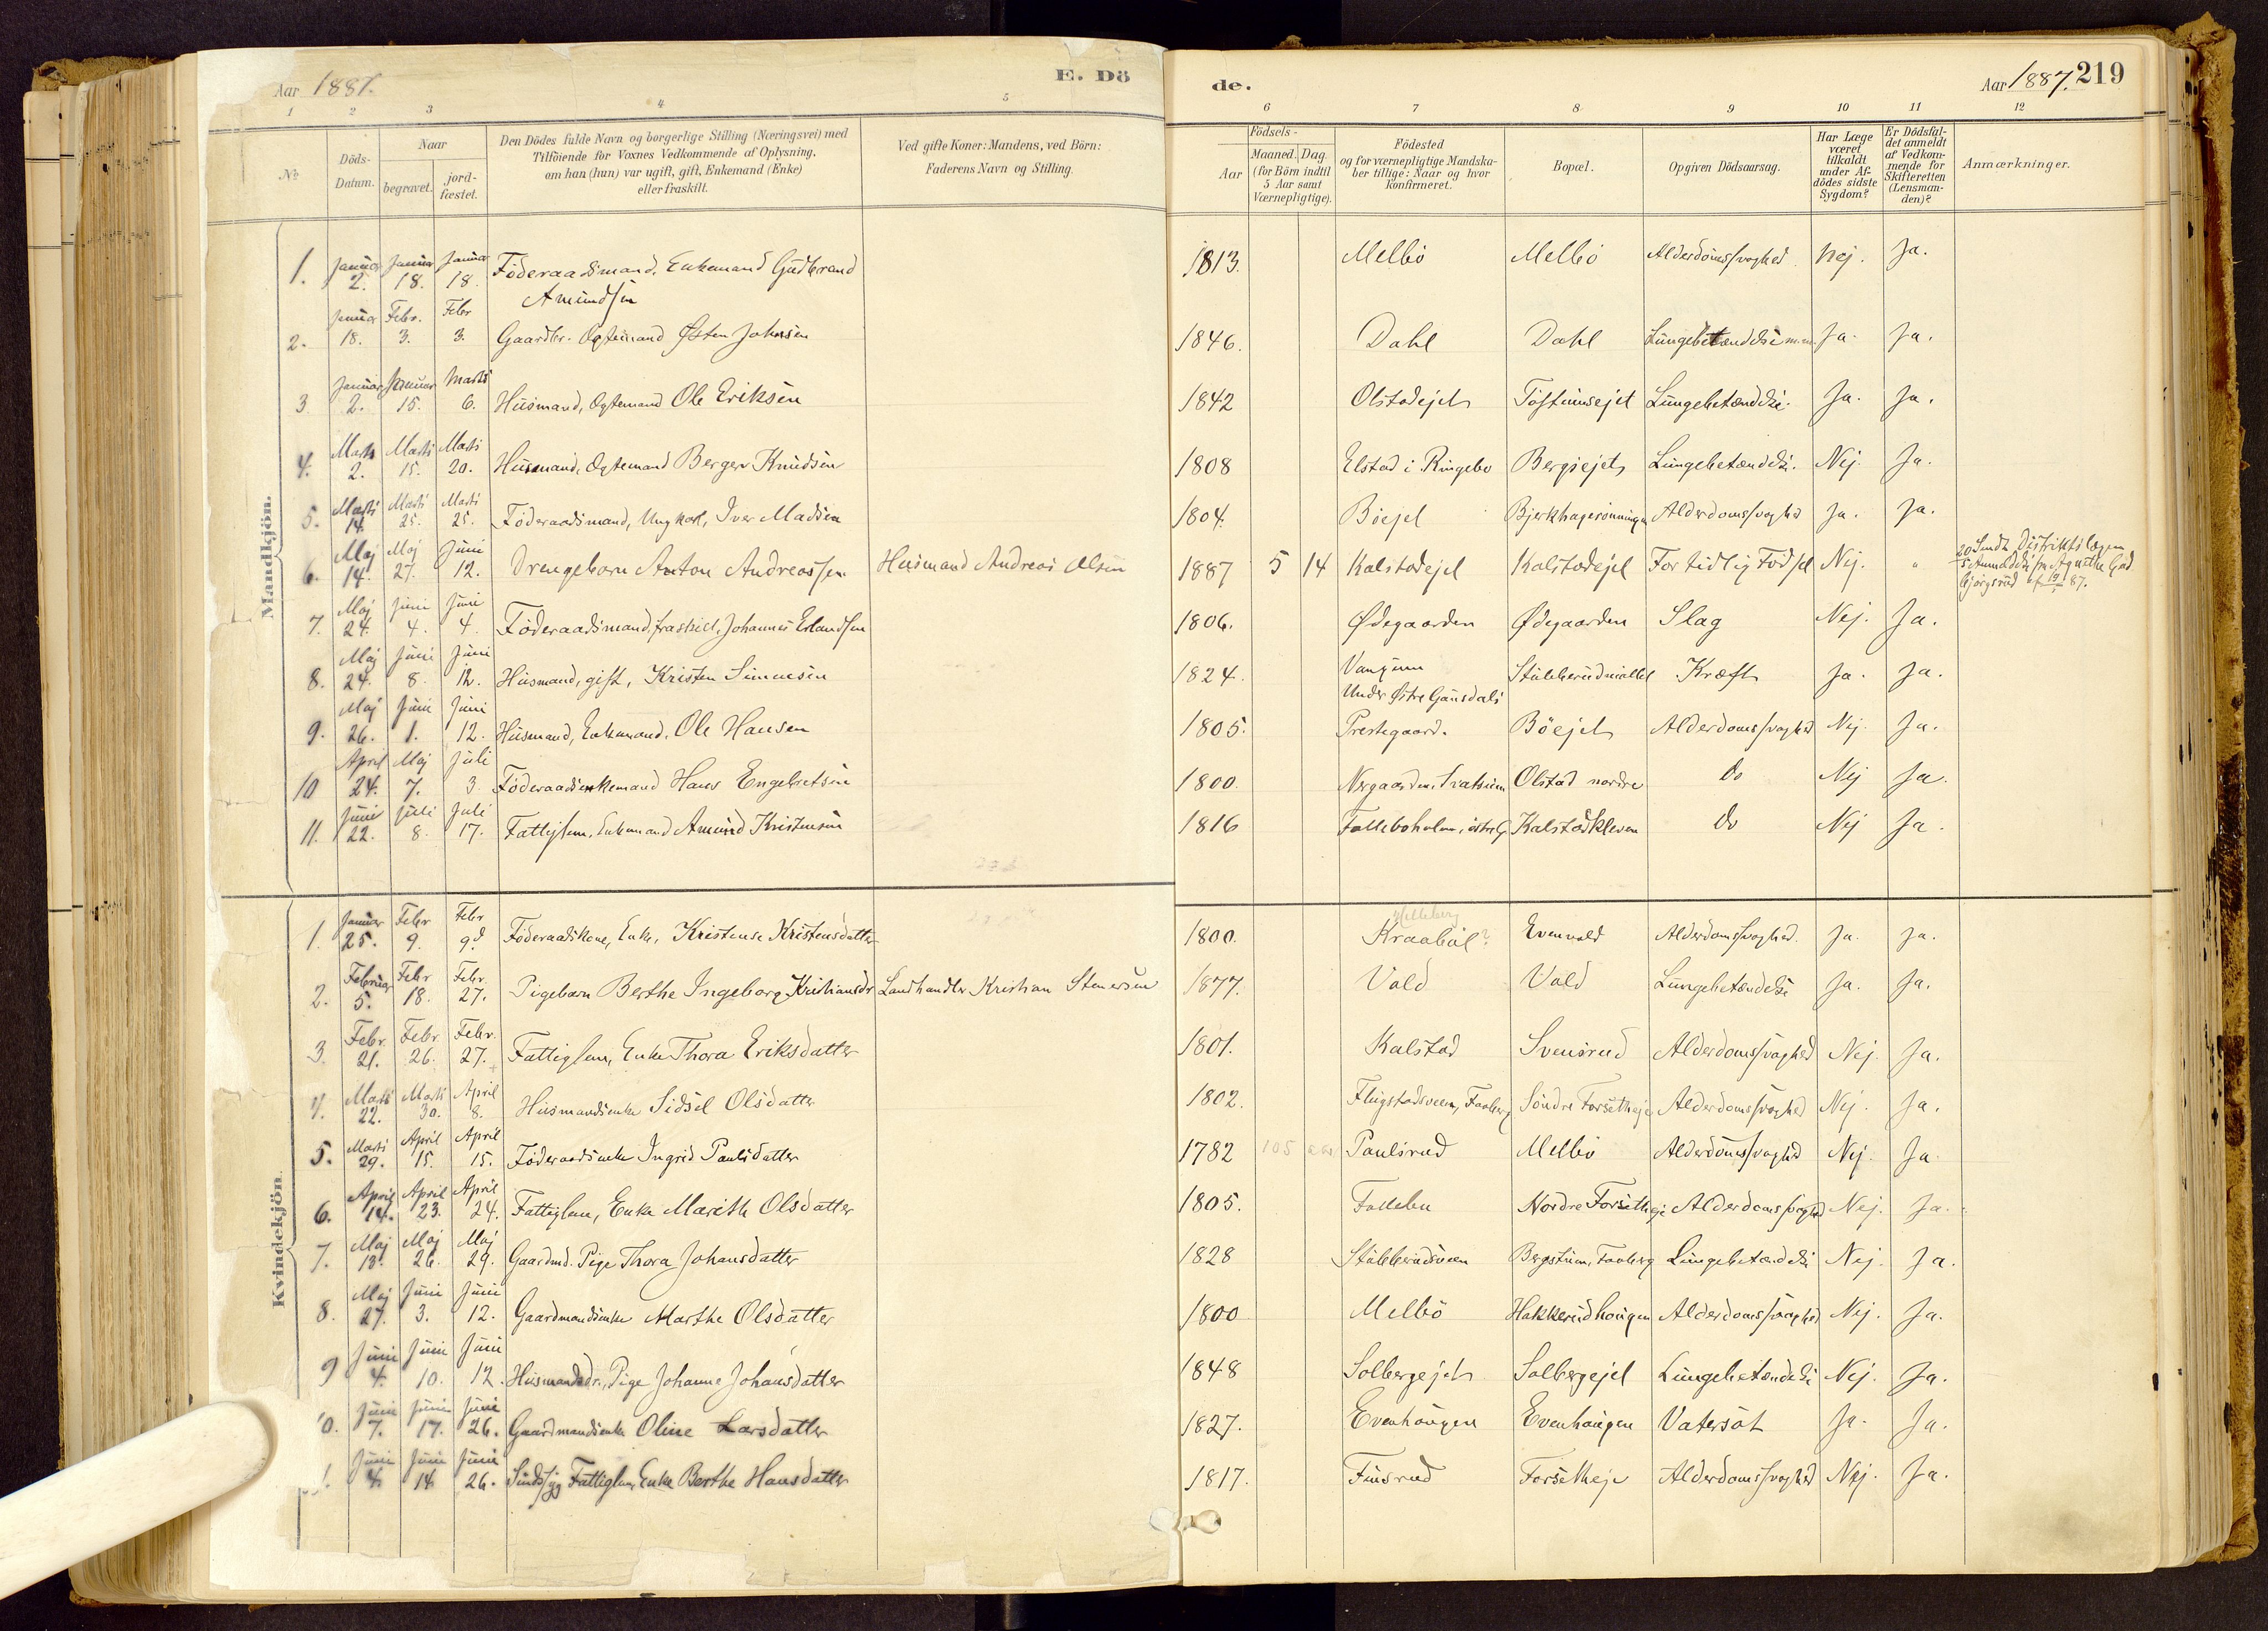 Aar 1887.
E. Dö
1 2 3 4 5
No
Döds-Datum.
Naar
begravet.
jord-fæstet.
Den Dödes fulde Navn og borgerlige Stilling (Næringsvei) med
Tilföiende for Voxnes Vedkommende af Oplysning,
om han (hun) var ugift, gift, Enkemand (Enke)
eller fraskilt.
Ved gifte Koner: Mandens, ved Börn:
Faderens Navn og Stilling.
Mandkjön.
1. Januar 2. Januar 18. Januar 18. Föderaadsmand, Enkemand Gudbrand
Amundsen
2. Januar 18. Febr. 3. Febr 3. Gaardbr. Ogtemand Østen Johnsen
3. Januar 2. Januar 15. Marts 6. Husmand, Ogtemand Ole Eriksen
4. Marts 2. Marts 15. Marts 20. Husmand, Ogtemand Berger Knudsen
5. Marts 14. Marts 25. Marts 25. Föderaadsmand, Ungkarl, Iver Madsen
6. Maj 14. Maj 27. Juni 12. Drengebarn Anton Andreassen Husmand Andreas Olsen
7. Maj 24. Juni 4. Juni 4. Föderaadsmand, fraskilt, Johannes Erlandsen
8. Maj 24. Juni 8. Juni 12. Husmand, gift, Kristen Simensen
9. Maj 26. Juni 1. Juni 12. Husmand, Enkemand, Ole Hansen
10 April 24. Maj 7. Juli 3. Föderaadsenkemand Hans Engebretsen
11. Juni 22. Juli 8. Juli 17. Fattiglem, Enkemand Amund Kristensen
Kvindekjön.
1. Januar 25. Febr 9. Febr 9d Föderaadskone, Enke, Kristense Kristensdatter
2. Februar 5. Febr 18. Febr. 27. Pigebarn Berthe Ingeborg Kristiansdr Landhandler Kristian Stenersen
3. Febr. 21. Febr. 26. Febr. 27. Fattiglem, Enke Thora Eriksdatter
4. Marts 22. Marts 30. April 8. Husmandsenke Sidsel Olsdatter
5. Marts 29. April 15. April 15. Föderaadsenke Ingrid Paulsdatter
6. April 14. April 23. April 24. Fattiglem, Enke Marith Olsdatter
7. Maj 18. Maj 26. Maj 29. Gaardmd. Pige Thora Johansdatter
8. Maj 27. Juni 3. Juni 12. Gaardmandsenke Marthe Olsdatter
9 Juni 4. Juni 10. Juni 12. Husmandsdr., Pige Johanne Johansdatter
10. Juni 7. Juni 17. Juni 26. Gaardmandsenke Oline Larsdatter
Juni 4. Juni 14. Juni 26. Sindssyg Fattiglem, Enke Berthe Hansdatter
de.
Aar 1887. 219
6 7 8 9 10 11 12
Födsels-
Aar
Maaned. Dag.
(for Börn indtil
5 Aar samt
Værnepligtige).
Födested
og for værnepligtige Mandska-
ber tillige: Naar og hvor
konfirmeret.
Bopæl.
Opgiven Dödsaarsag.
Har Læge
været
tilkaldt
under Af-
dödes sidste
Sygdom?
Er Dödsfal-
det anmeldt
af Vedkom-
mende for
Skifteretten
(Lensman-
den)?
Anmærkninger.
1813. Mellbö Mellbö Alderdomssvaghed Nej. Ja.
1846. Dahl Dahl Lungebetændelse m.m. Ja. Ja.
1842 Olstadejet Lungebetændelse. Ja. Ja.
1808 Elstad i Ringebo Bergsejet Lungebetændelse. Nej. Ja.
1804. Böejet Bjerkhagerönningen Alderdomssvaghed Ja. Ja.
1887 5 14 Kalstadejet Kalstadejet For tidlig Födsel Nej. "
20/5 Sendt Distriktslægen
Anmeldelse fra Agnethe Gud
bjørgsrud af 19/5 87.
1806. Ødegaarden Ødegaarden Slag Nej. Ja.
1824. Vangum
Under Østre Gausdals Kræft Ja. Ja.
1805. Prestegaard. Böejet Alderdomssvaghed Nej. Ja.
1800. Olstad nordre do Nej Ja.
1816 Kalstadkleven do Nej Ja.
Helleberg
1800. Kraabøl? Evenvold Alderdomssvaghed. Ja. Ja.
1877. Vold Vold Lungebetændelse Ja. Ja.
1801. Kalstad Svensrud Alderdomssvaghed Nej. Ja.
1802. Flugstadsveen, Faaberg Søndre Forsetheje Alderdomssvaghed Nej. Ja.
1782 105 aar Paulsrud Mellbö Alderdomssvaghed Nej. Ja.
1805. Follebu Nordre Forsetheje Alderdomssvaghed Nej. Ja.
1828 Stubberudsveen Bergstuen, Faaberg Lungebetændelse Nej. Ja.
1800 Mellbö Hakkerudhougen Alderdomssvaghed Nej. Ja.
1848 Solbergejet Solbergejet Lungebetændelse Nej. Ja.
1827. Evenhaugen Evenhaugen Vatersot Ja. Ja.
1817. Finsrud Forsetheje Alderdomssvaghed Nej. Ja.